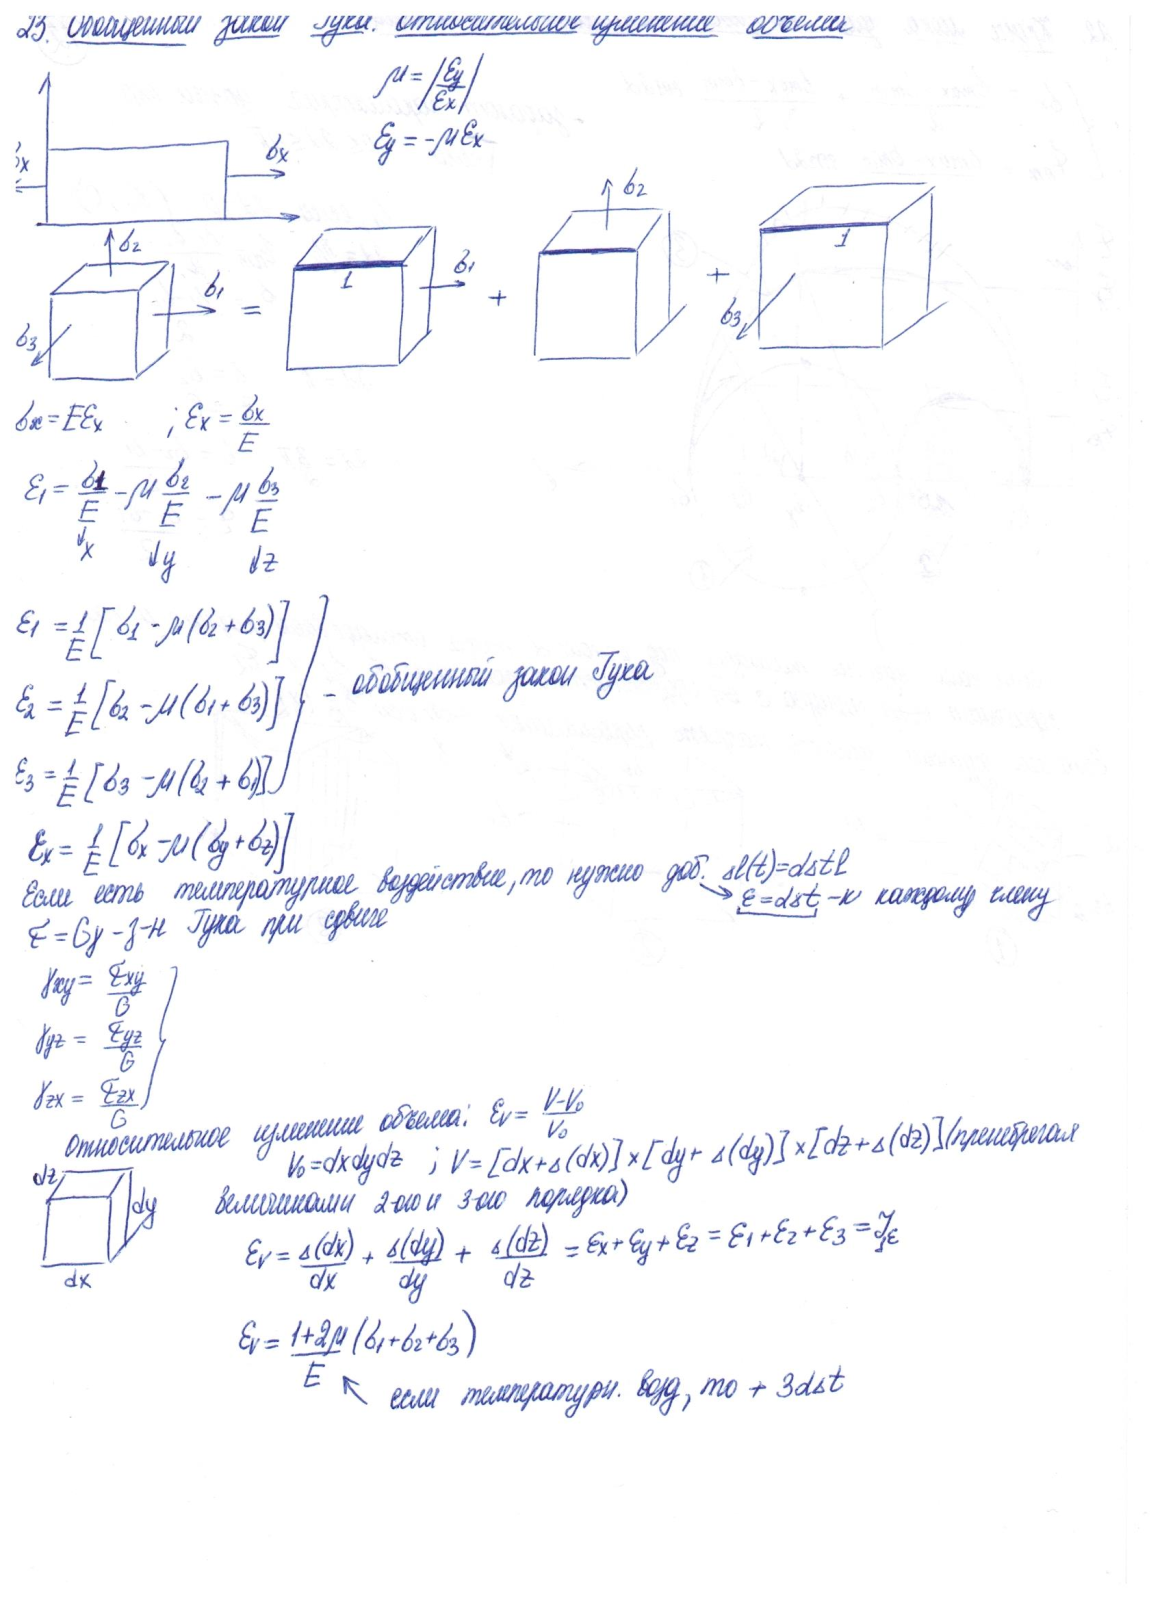 23. Обобщенный закон Гука. Относительное изменение объема
μ = |εy/εx|
εy = -μεx
σx
σx
σ2
σ1
σ3
=
1
σ1
+
σ2
+
1
σ3
σx = Eεx ; εx = σx/E
ε1 = σ1/E - μ σ2/E - μ σ3/E
↓x ↓y ↓z
ε1 = 1/E [σ1 - μ(σ2 + σ3)]
ε2 = 1/E [σ2 - μ(σ1 + σ3)]
- обобщенный закон Гука
ε3 = 1/E [σ3 - μ(σ2 + σ1)]
εx = 1/E [σx - μ(σy + σz)]
Если есть температурное воздействие, то нужно доб. Δl(t) = αΔtl
→ ε = αΔt - к каждому члену
τ = Gγ - з-н Гука при сдвиге
γxy = τxy/G
γyz = τyz/G
γzx = τzx/G
Относительное изменение объема: εv = V-V₀/V₀
V₀ = dxdydz ; V = [dx + Δ(dx)] × [dy + Δ(dy)] × [dz + Δ(dz)] (пренебрегая
величинами 2-ого и 3-ого порядка)
dz
dy
dx
εv = Δ(dx)/dx + Δ(dy)/dy + Δ(dz)/dz = εx + εy + εz = ε1 + ε2 + ε3 = J₁ε
εv = 1+2μ/E (σ1 + σ2 + σ3)
если температурн. возд, то + 3αΔt